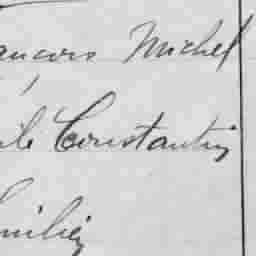 ançois Michel
ile Constantin
milien